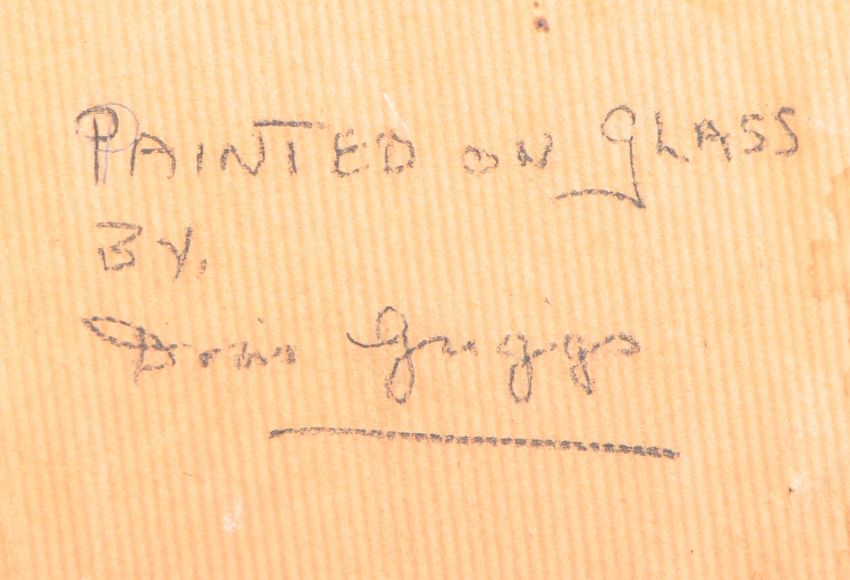 PAINTED ON GLASS
BY.
Doris Griggs